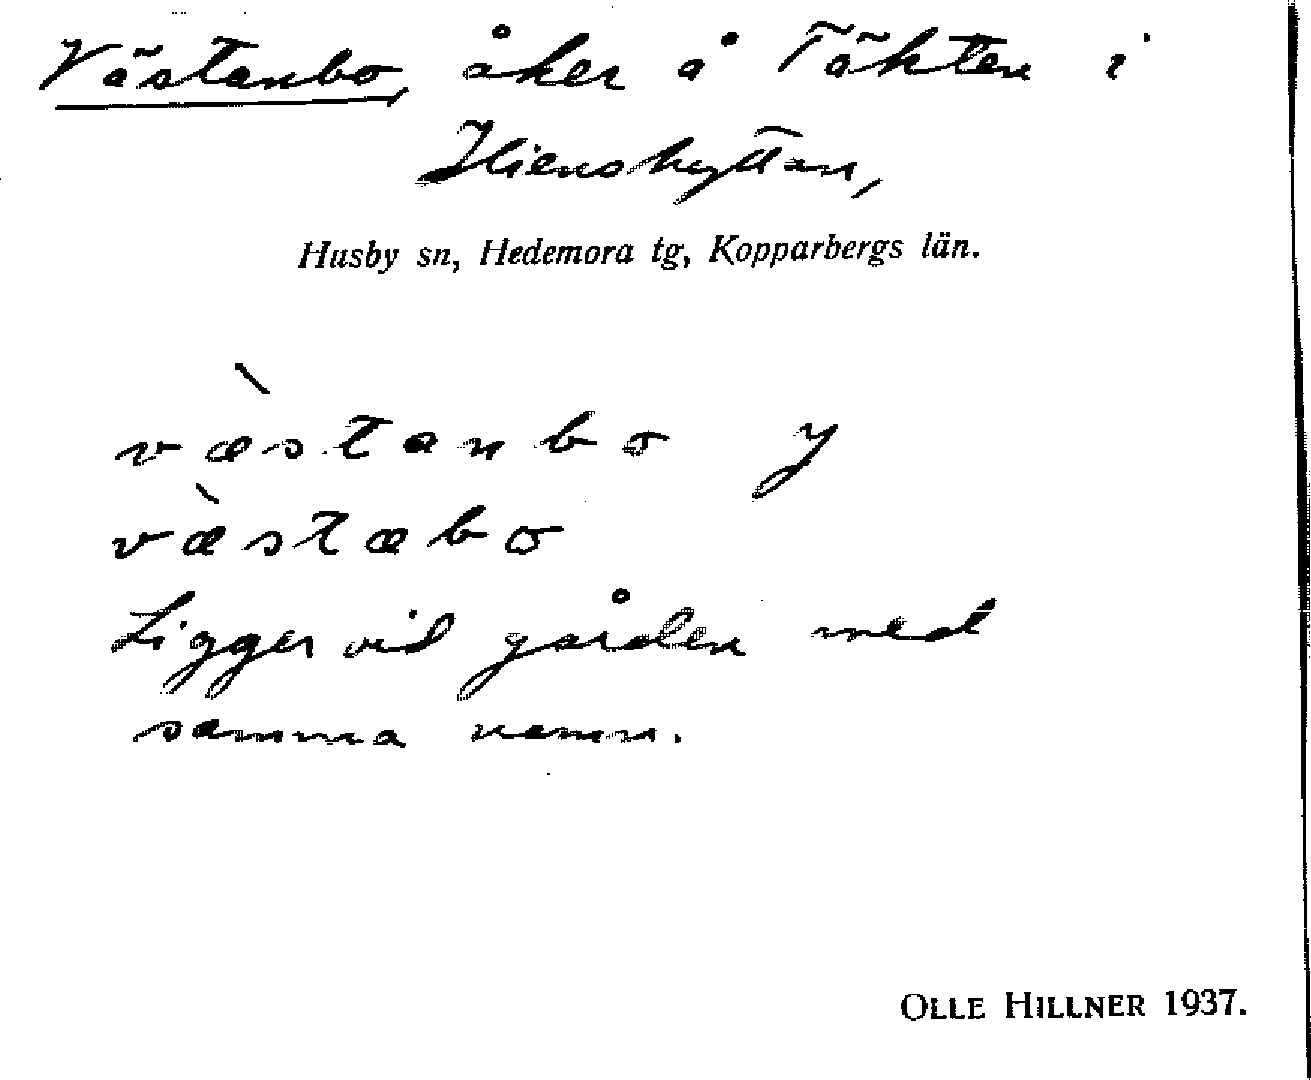 Västanbo, åker å Täkten i
Flienshyttan,
Husby sn, Hedemora tg, Kopparbergs län.
væ̀stanbo y
væ̀stæbo
Ligger vid gården med
samma namn.
OLLE HILLNER 1937.